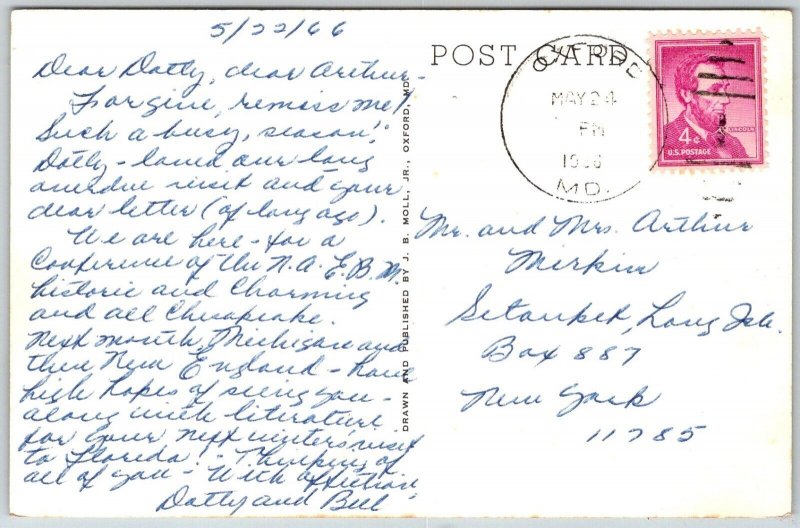 5/22/66
Dear Dotty, dear Arthur-
Forgive, remiss me!
Such a busy, season!
Dotty - loved our long
overdue visit and your
dear letter (of long ago).
We are here - for a
Conference of the N.A.E.B.M.
historic and Charming
and all Chesapeake.
Next month, Michigan and
then New England - have
high hopes of seeing you -
along with literature
for your next winters visit
to Florida! - Thinking of
all of you - With affection,
Dotty and Bill
DRAWN AND PUBLISHED BY J. B. MOLL, JR., OXFORD, MD.
POST CARD
OXFORD
MAY 24
PM
MD.
LINCOLN
4¢
U.S. POSTAGE
Mr. and Mrs. Arthur
Mirkin
Setauket, Long Isle.
Box 887
New York
11785